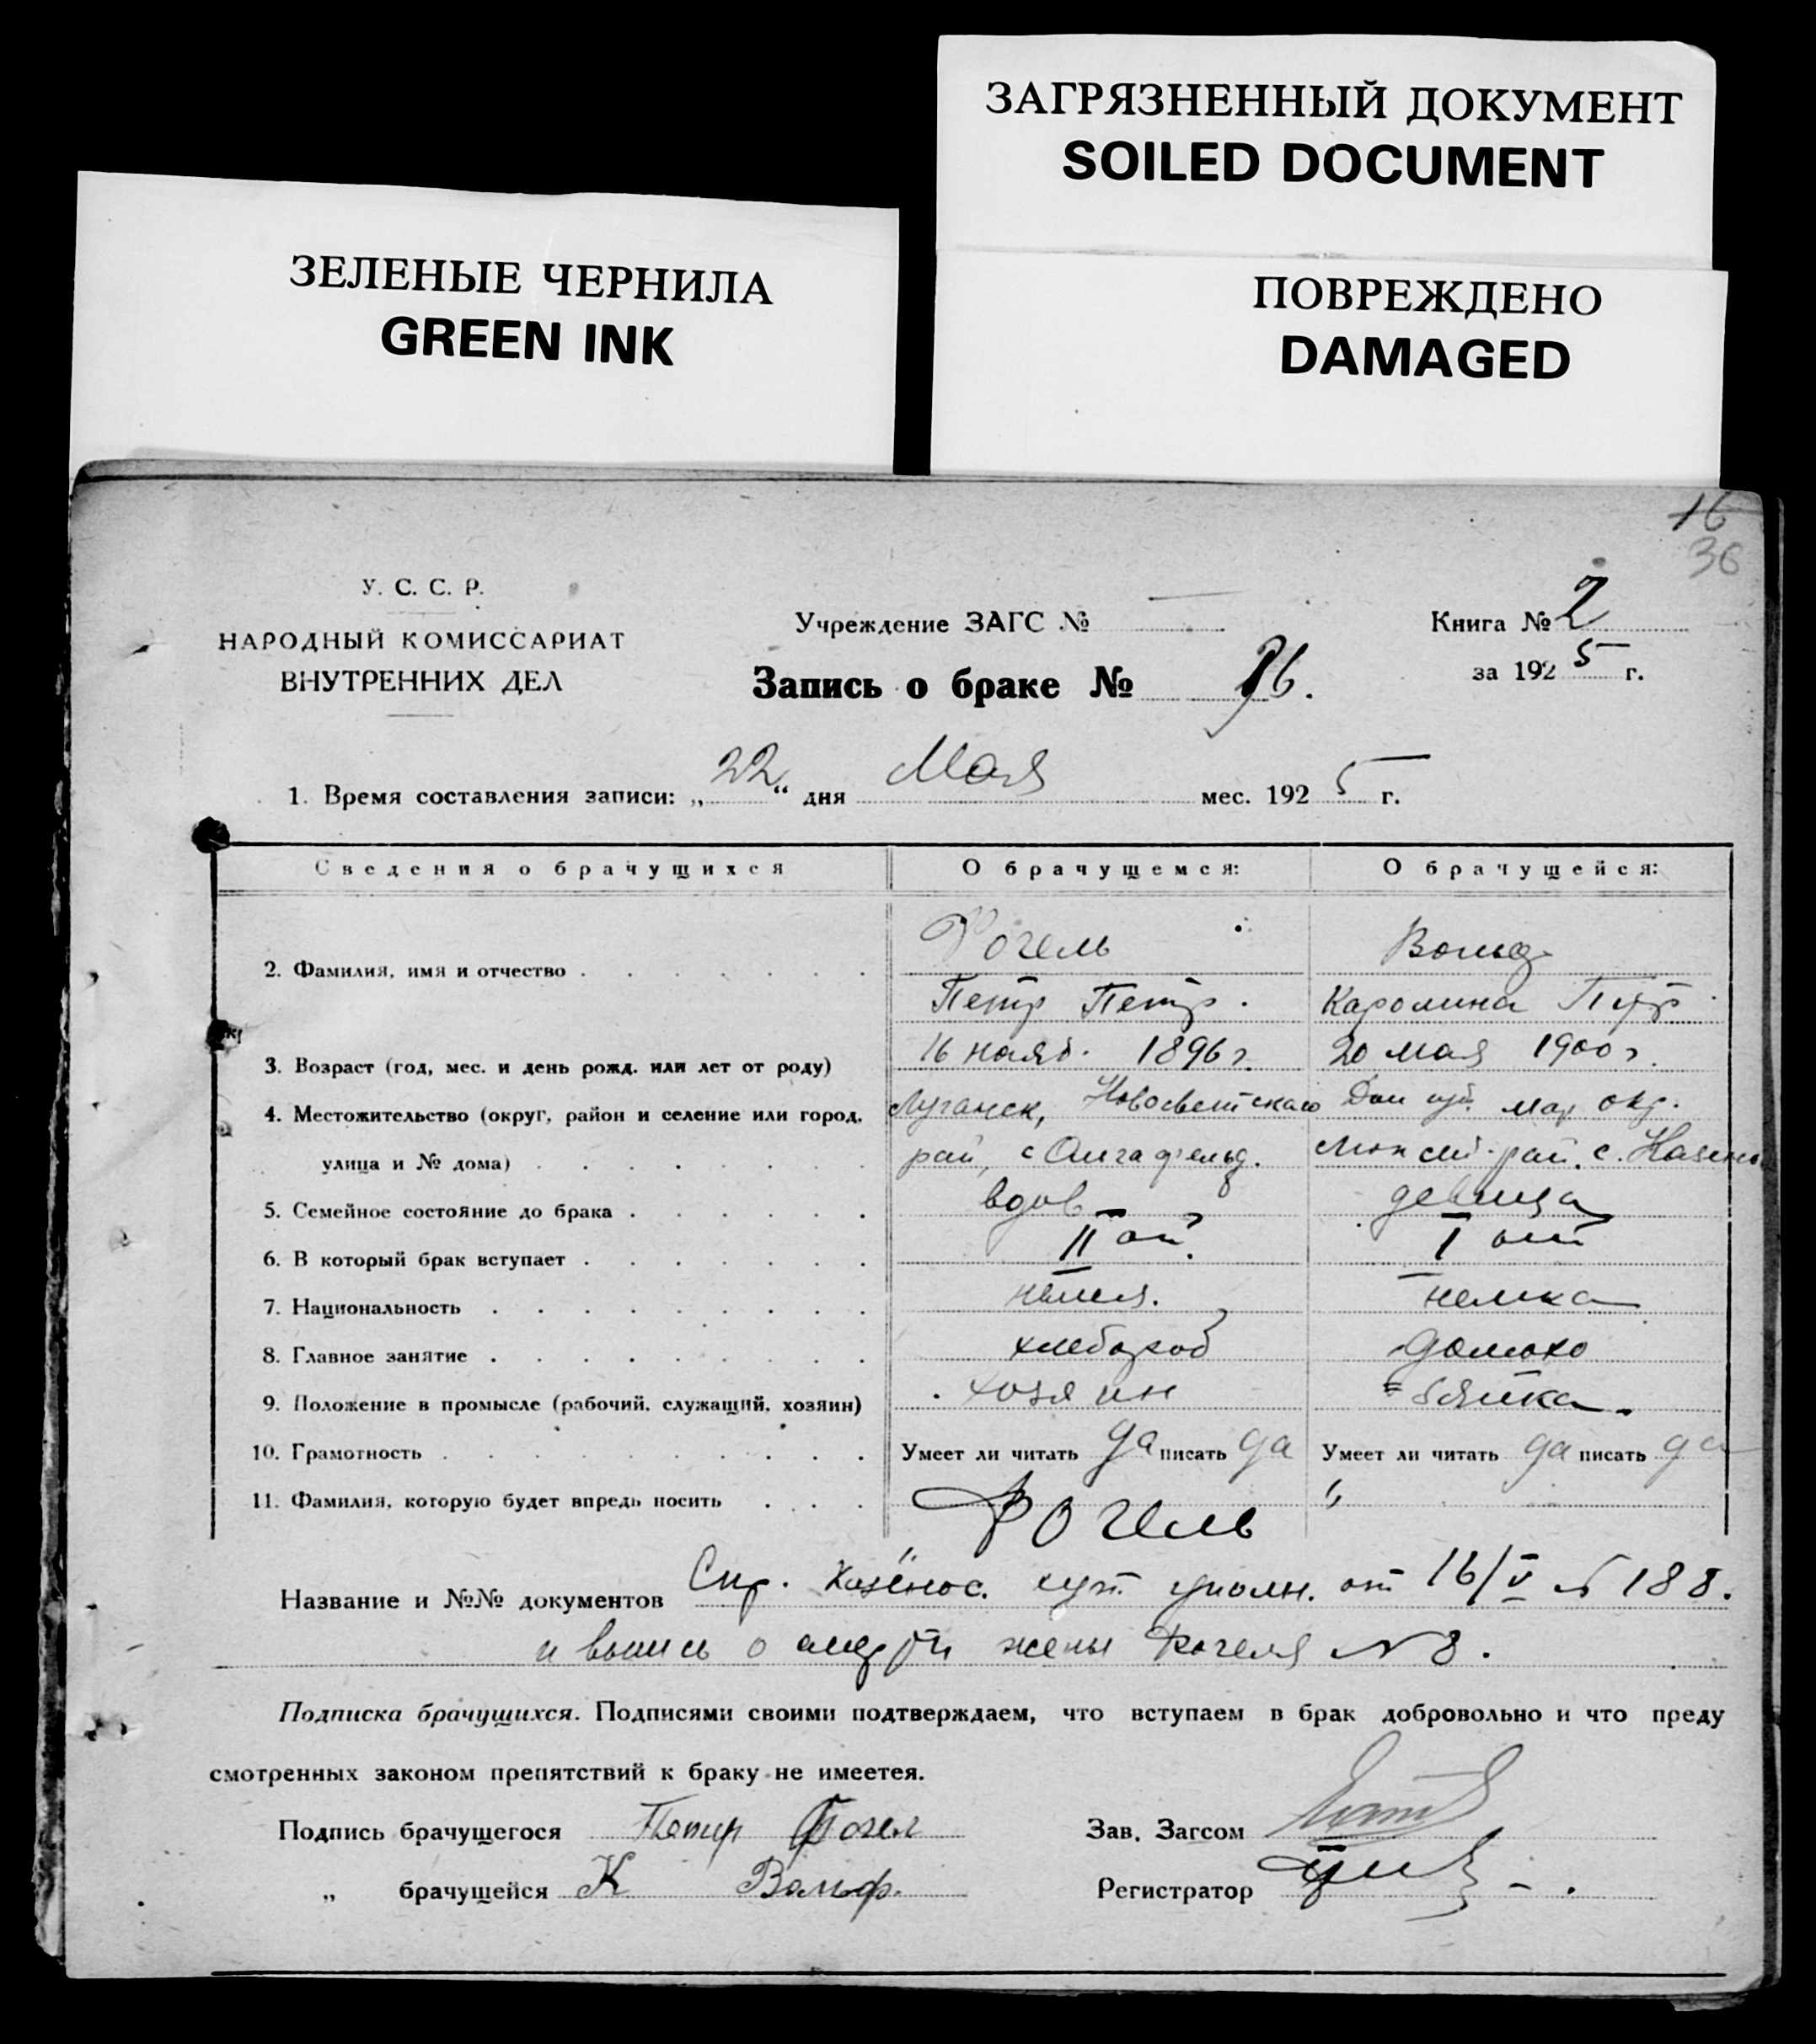 ЗАГРЯЗНЕННЫЙ ДОКУМЕНТ
SOILED DOCUMENT
ЗЕЛЕНЫЕ ЧЕРНИЛА
GREEN INK
ПОВРЕЖДЕНО
DAMAGED
16
36
У. С. С. Р.
НАРОДНЫЙ КОМИССАРИАТ
ВНУТРЕННИХ ДЕЛ
Учреждение ЗАГС №
Книга № 2
за 1925 г.
Запись о браке № 96.
1. Время составления записи: „22“ дня Мая мес. 1925 г.
Сведения о брачущихся О брачущемся: О брачущейся:
2. Фамилия, имя и отчество Фогель Вольф
Петр Петр. Каролина Петр.
3. Возраст (год, мес. и день рожд. или лет от роду) 16 нояб. 1896 г. 20 мая 1900 г.
4. Местожительство (округ, район и селение или город, Луганск, Новосветскаго Дон. губ. мар. окр.
улица и № дома) рай, с Ольгафельд. рай. с.
5. Семейное состояние до брака вдов девица
6. В который брак вступает II ой. I ый
7. Национальность немец. немка
8. Главное занятие хлебороб домохо
9. Положение в промысле (рабочий, служащий, хозяин) хозяин =зяйка.
10. Грамотность Умеет ли читать да писать да Умеет ли читать да писать да
11. Фамилия, которую будет впредь носить Фогель "
Название и №№ документов Спр. хут. уполн. от 16/V № 188.
и выпись о смерти жены Фогеля № 8.
Подписка брачущихся. Подписями своими подтверждаем, что вступаем в брак добровольно и что преду
смотренных законом препятствий к браку не имеется.
Подпись брачущегося Петр Фогел Зав. Загсом
„ брачущейся К Вольф. Регистратор